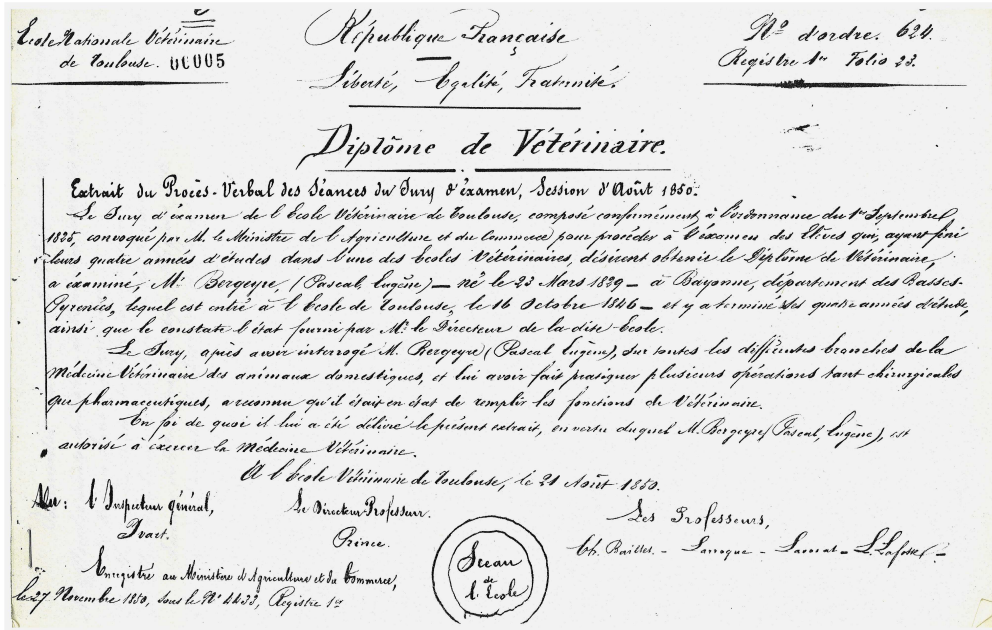 Ecole Nationale Vétérinaire
de Toulouse. 00005
République Française
Liberté, Egalité, Fraternité.
No d'ordre. 624.
Registre 1er Folio 23.
Diplôme de Vétérinaire.
Extrait du Procès-Verbal des Séances du Jury d'éxamen, Session d'Août 1850.
Le Jury d'éxamen de l'Ecole Vétérinaire de Toulouse, composé conformément à l'ordonnance du 1er Septembre
1825, convoqué par M. le Ministre de l'Agriculture et du Commerce pour procéder à l'éxamen des Elèves qui, ayant fini
leurs quatre années d'études dans l'une des Ecoles Vétérinaires, désirent obtenir le Diplôme de Vétérinaire,
à éxaminé, Mr Bergeyre, (Pascal, Eugène) — né le 23 Mars 1829 — à Bayonne, département des Basses-
Pyrenées, lequel est entré à l'Ecole de Toulouse, le 16 Octobre 1846 — et y a terminé ses quatre années d'étude,
ainsi que le constate l'état fourni par Mr le Directeur de la dite Ecole.
Le Jury, après avoir interrogé M. Bergeyre (Pascal Eugène), sur toutes les différentes branches de la
Médecine Vétérinaire des animaux domestiques, et lui avoir fait pratiquer plusieurs opérations tant chirurgicales
que pharmaceutiques, a reconnu qu'il était en état de remplir les fonctions de Vétérinaire.
En foi de quoi il lui a été délivré le présent extrait, en vertu duquel M. Bergeyre (Pascal, Eugène), est
autorisé à éxercer la médecine Vétérinaire.
A l'Ecole Vétérinaire de Toulouse, le 21 Août 1850.
Vu : l'Inspecteur général,
Yvart.
Le Directeur-Professeur.
Prince.
Les Professeurs,
Ch. Bailles. — Larroque — — L. Lafosse —
Sceau
de
l'Ecole
Enregistré au Ministère d'Agriculture et du Commerce,
le 27 Novembre 1850, sous le No 4433, Registre 1er